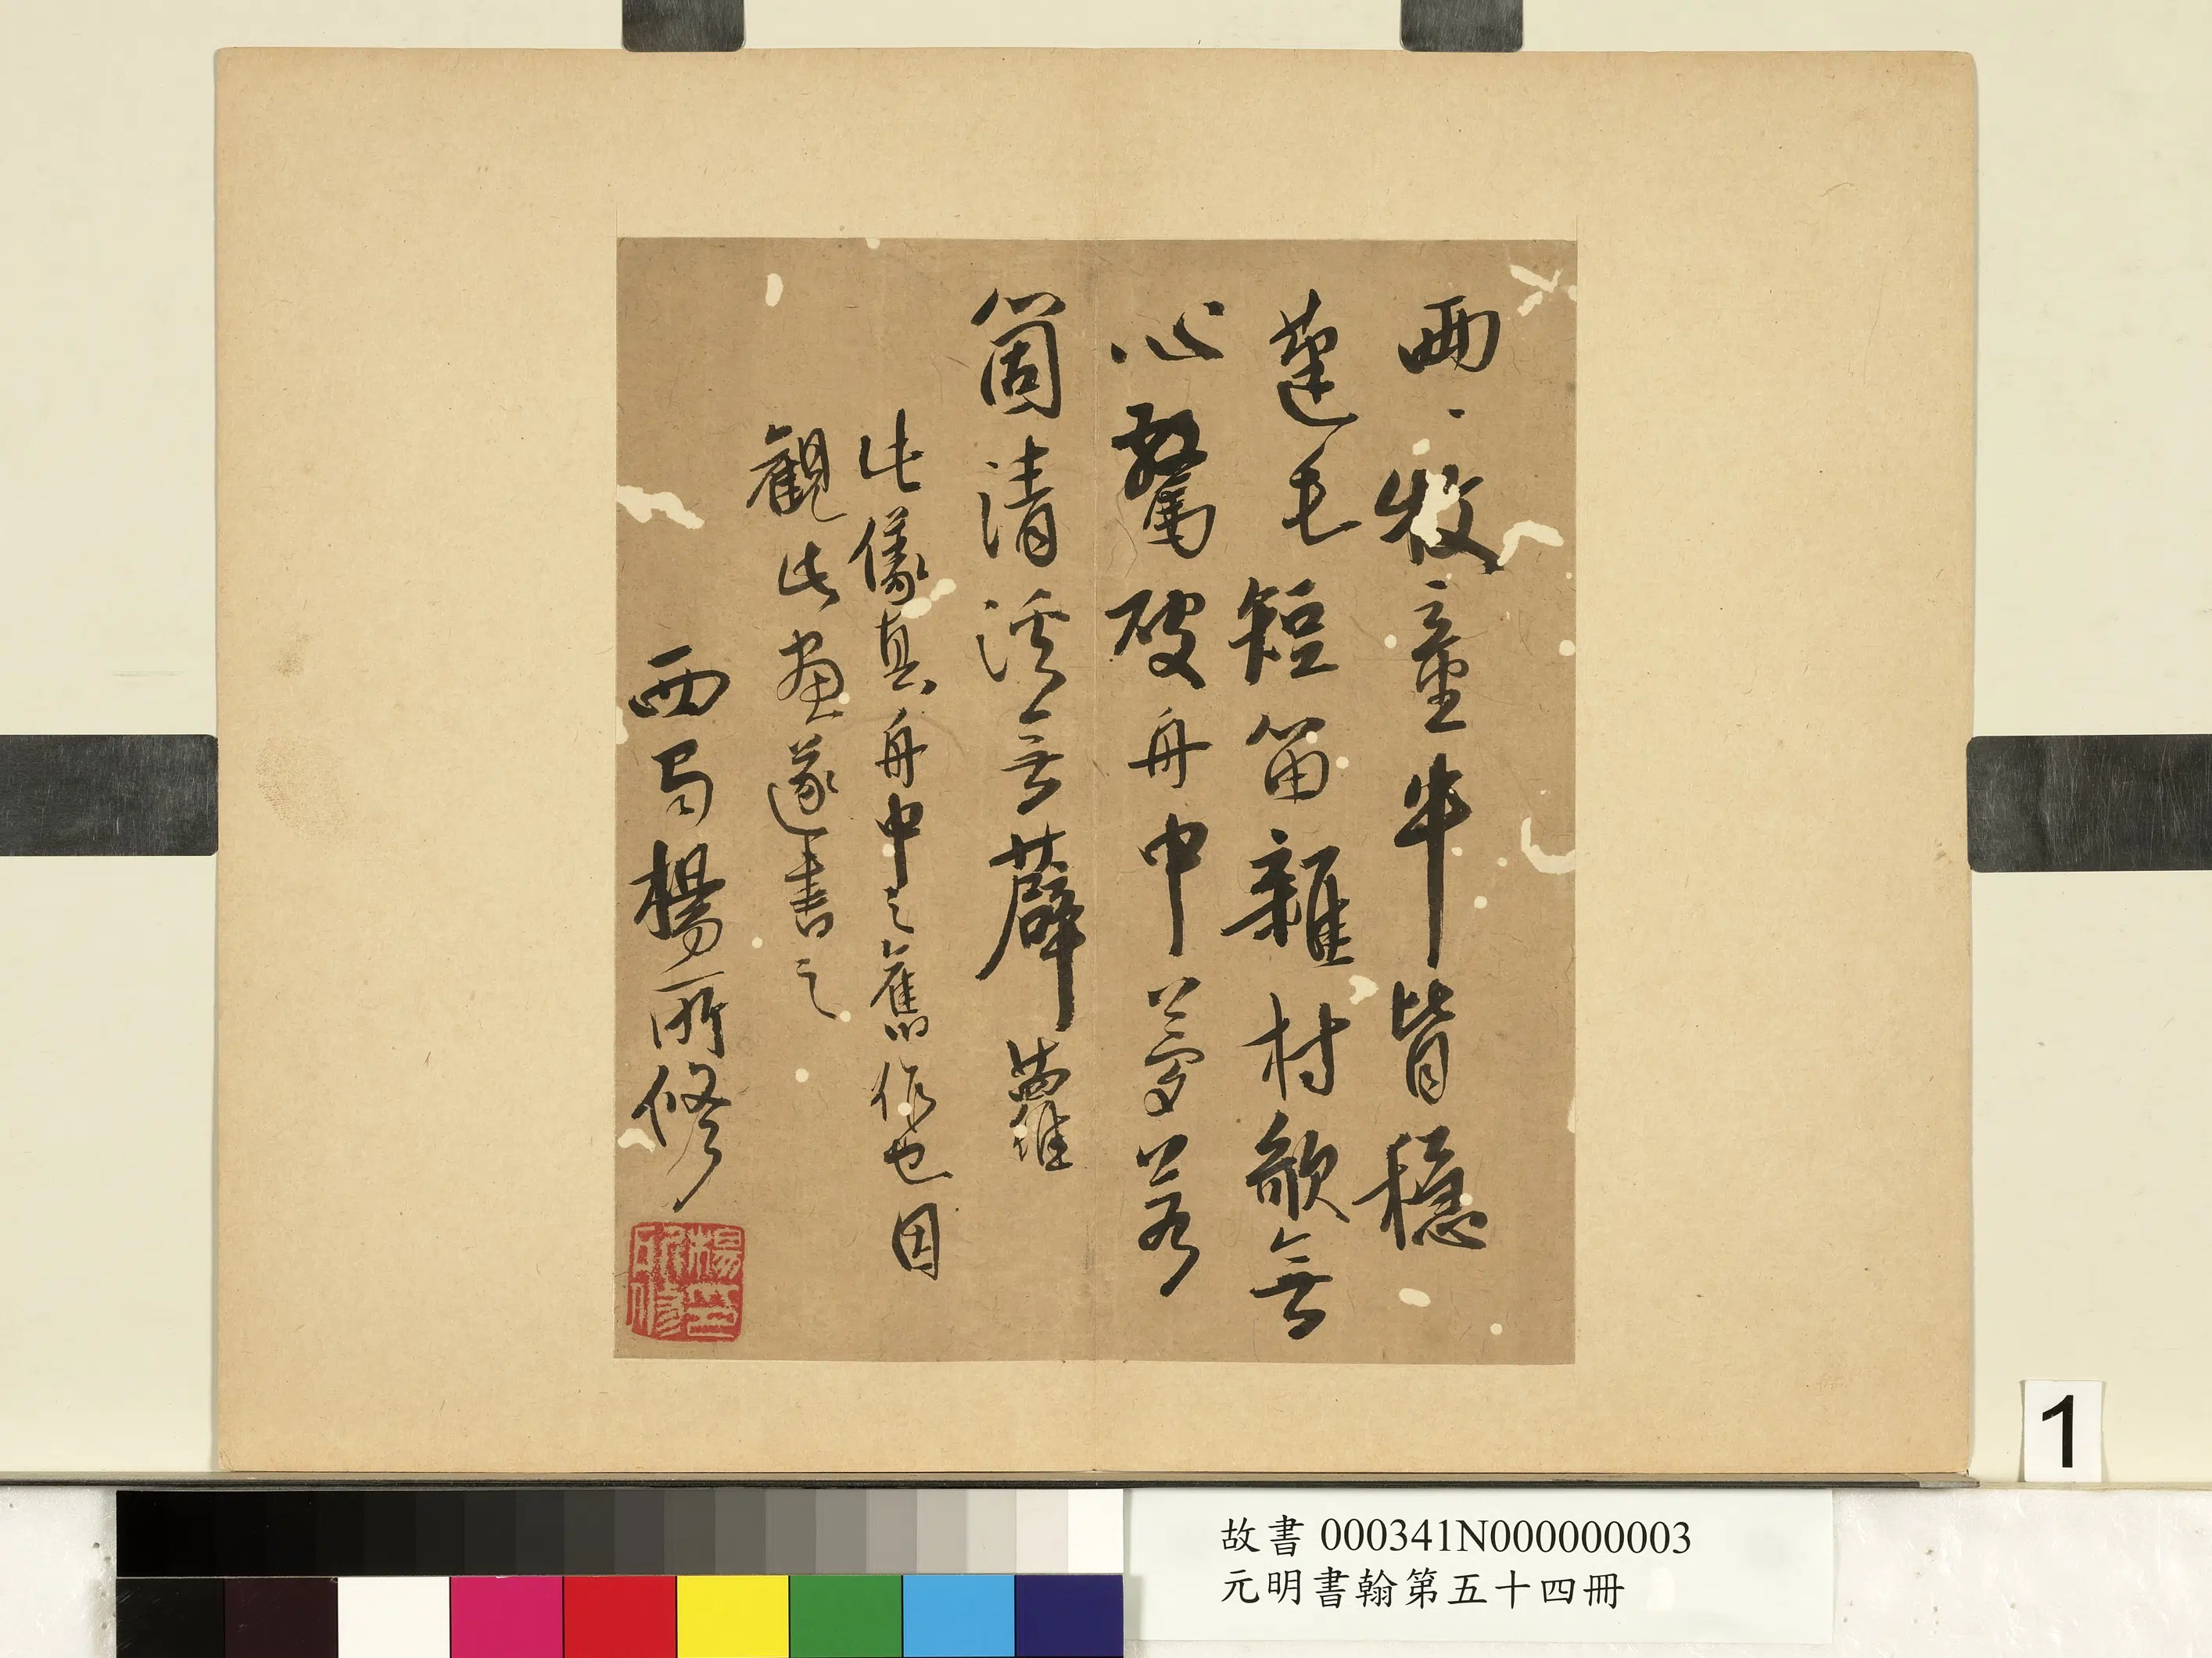 兩〻牧童牛背穩
蓬毛短笛雜村歌無
心驚破舟中夢若
箇清溪無薜蘿
此儀真舟中之舊作也因
觀此畫遂書之
西蜀楊所修
楊印所修
1
故書 000341N000000003
元明書翰第五十四冊